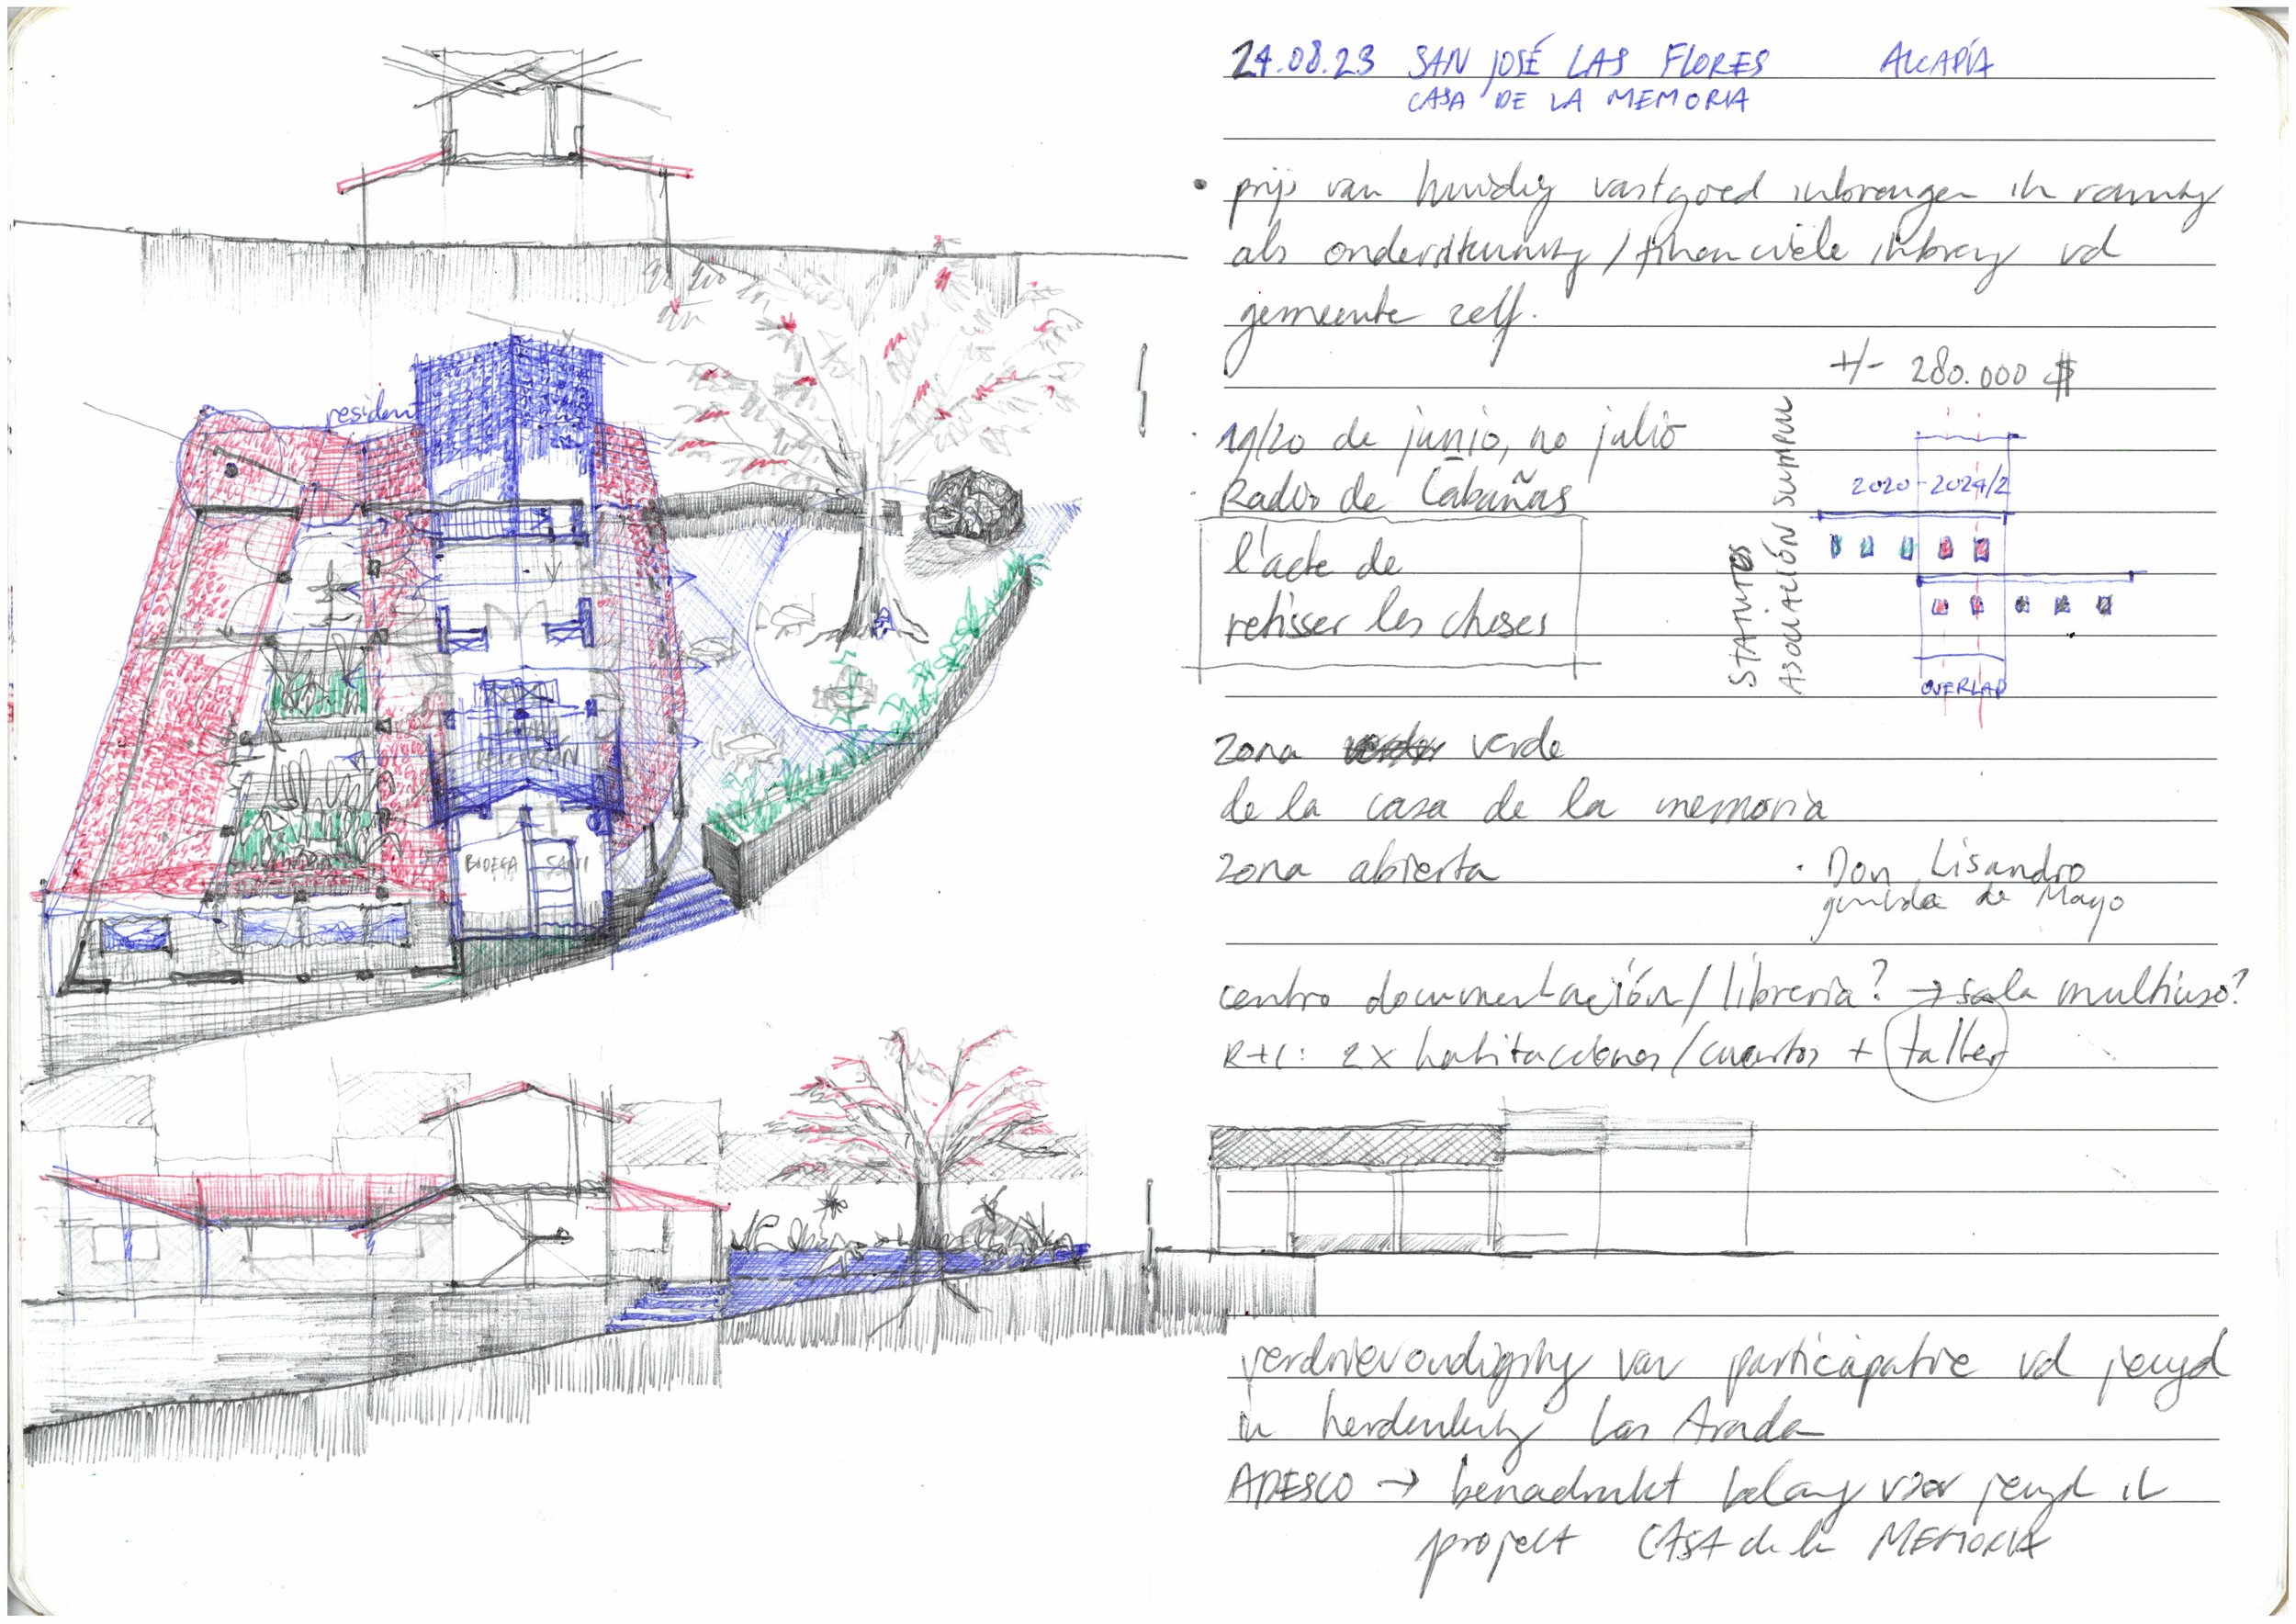 resident
BODEGA SANI
24.08.23 SAN JOSÉ LAS FLORES ALCAPÍA
CASA DE LA MEMORIA
• prijs van huidig vastgoed inbrengen in raming
als ondersteuning / financiële inbreng vd
gemeente zelf.
+/- 280.000 $
· 19/20 de junio, no julio
· Radio de Cabañas
l'acte de
retisser les choses
STATUTOS
ASOCIACIÓN SUMPUL
2020-2024/2
OVERLAP
zona verde
de la casa de la memoria
zona abierta
· Don Lisandro
de Mayo
centro documentación/libreria? → sala multiuso?
R+C: 2x habitacciones/cuartos + taller
verdrievoudiging van participatie vd jeugd
in herdenking Las Aradas
ADESCO → benadrukt belang voor jeugd in
project CASA de la MEMORIA